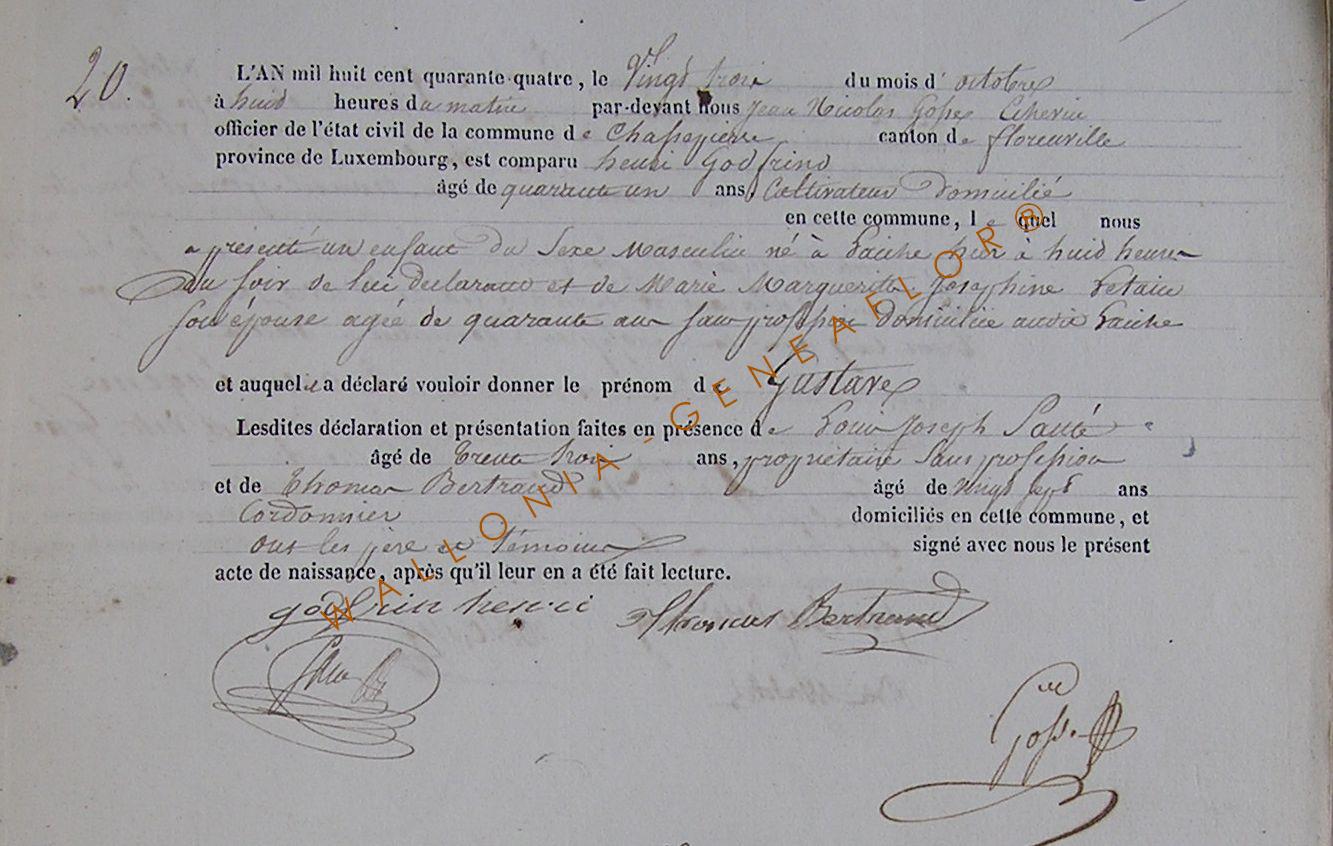 20.
L'AN mil huit cent quarante-quatre, le Vingt trois du mois d' octobre
à huid heures du matin par-devant nous Jean Nicolas Gosse Echevin
officier de l'état civil de la commune de Chassepierre canton de florenville
province de Luxembourg, est comparu henri Godfrind
âgé de quarante un ans, Cultivateur Domicilié
en cette commune, le quel nous
a présenté un enfant du Sexe Masculin né à Laiche hier à huid heures
du soir de lui declarant et de Marie Marguerite Josephine Letaie
son épouse agée de quarante ans sans profession domiciliée audit Laiche
et auquel il a déclaré vouloir donner le prénom de Gustave
Lesdites déclaration et présentation faites en présence de Louis Joseph
âgé de trente trois ans, propriétaire sans profession
et de Thomas Bertrand âgé de vingt sept ans
Cordonnier domiciliés en cette commune, et
ont les père et témoins signé avec nous le présent
acte de naissance, après qu'il leur en a été fait lecture.
godfrin henri Thomas Bertrand
Gosse
WALLONIA-GENEAFLOR®